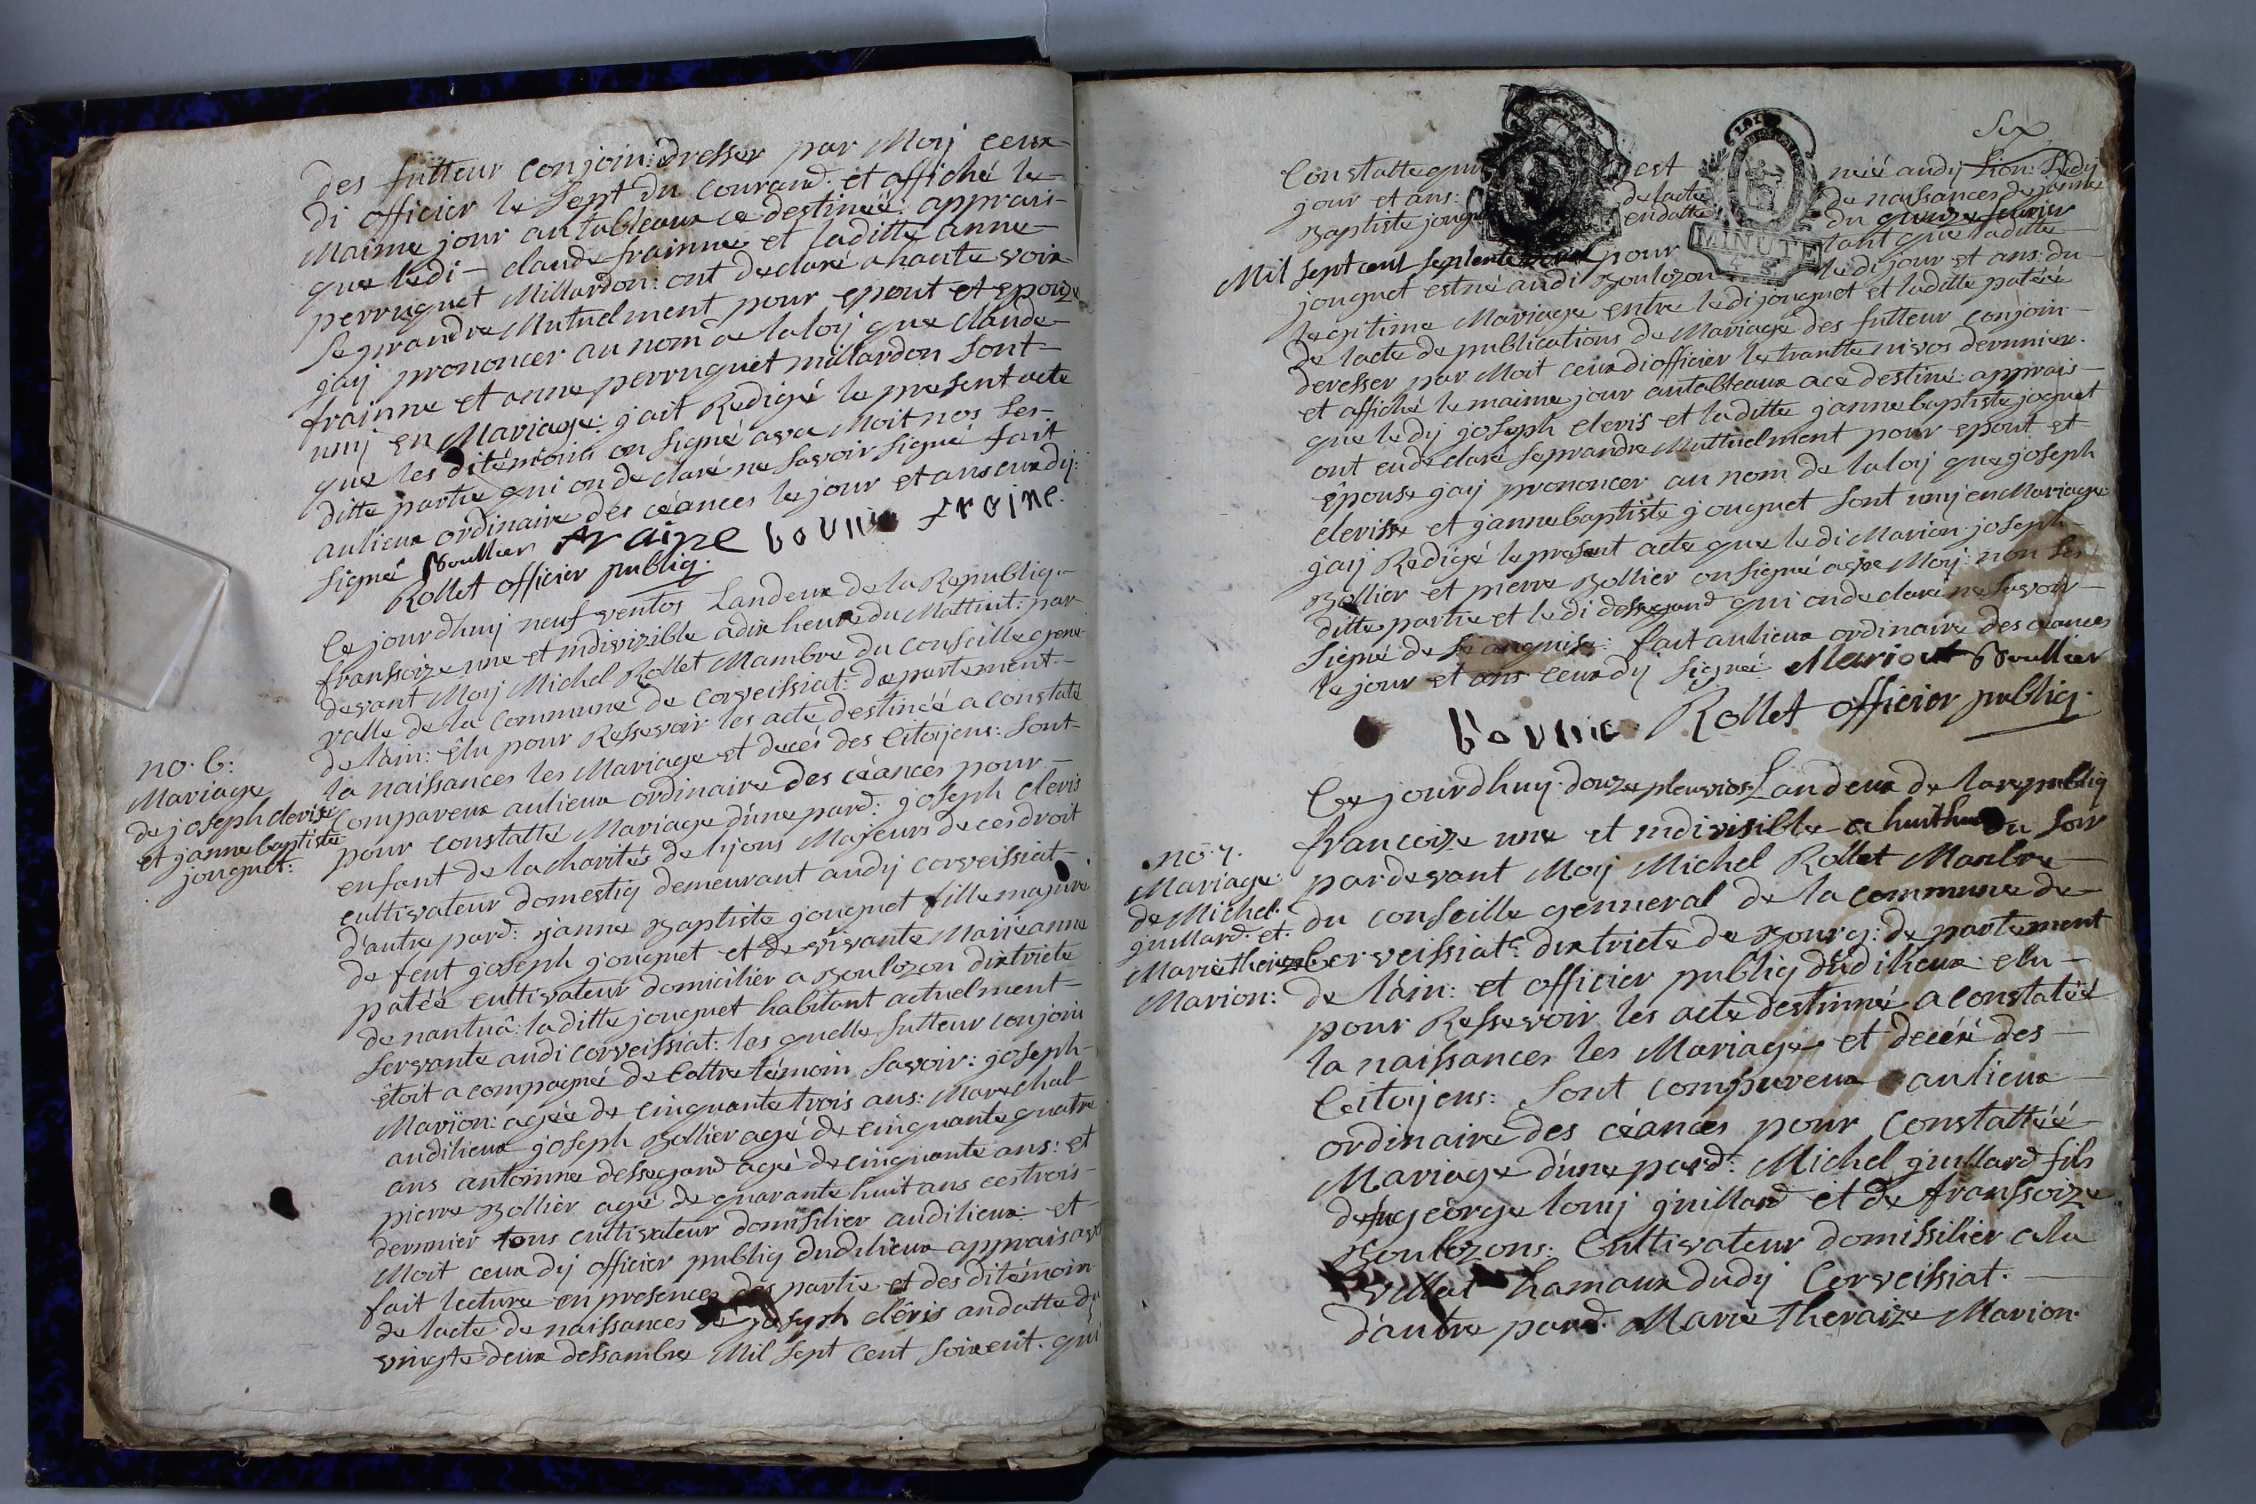 des futteur conjoin: dresser par Moij ceux
di officier le Sept du courand. et affiché le
Maime jour au tableaux ce destineé: apprais
que ledi claude frainne et laditte anne
perruquet Millardon: ont declaré a haute voix
se prandre Mutuelment pour epout et epouze
jaij prononcer au nom de la loij que claude
frainne et anne perruquet millardon Sont
unij en Mariage: jait Redigé le present acte
que les ditémoins on Signé avec Moit nos les
ditte partie qui on declaré ne Savoir Signé fait
au lieux ordinaire des céances le jour et ans ceux dij:
Signé Boullier fraine fraine.
Rollet officier publiq.
Ce jourdhuij neuf ventos Landeux de la Republiq
franssoize une et indivizible a dix heure du Mattint: par
devant Moij Michel Rollet Mambre du Conseille gene
ralle de la Commune de Corveissiat: departement
de lain: êlu pour Ressevoir les acte destinéé a constaté
la naissances les Mariage et decés des Citoijens: Sont
no. 6:
Mariage
de joseph clerise
et janne baptiste
jouguet:
Compareux au lieux ordinaire des céances pour
pour constatté Mariage d'une pard: joseph cleris
enfant de la charités de lijons Majeurs de ces droit
cultivateur domestiq demeurant audij corveissiat
d'autre pard: janne Baptiste jouguet fille majure
de feut joseph jouguet et de vivante Marie anne
patéé cultivateur domicilier a Boulozon dixtricte
de nantuâ: laditte jouguet habitant actuelment
Servante audi corveissiat: les quelle futteur conjoin
étoit a compagné de Cattre témoin Savoir: joseph
Marion: agée de cinquante trois ans: Marechal
audilieux joseph Bollier agé de cinquante quatre
ans antoinne dessegard agé de cinquante ans: et
pierre Bollier agé de quarante huit ans ces trois
dernnier tous cultivateur domisilier audilieux: et
Moit ceux dij officier publiq dudilieux apprais avoir
fait lecture en presences des partie et des ditémoin
de lacte de naissances de joseph cléris andatte du
vingte deux dessambre Mil Sept Cent Soixent. qui
Six
Constatte qui est néé audij Lion: Ledij
jour et ans: de lacte de naissances de janne
Baptiste jougu en datte du quinze fevrier
Mil Sept cent Septente pour tant que laditte
MINUTE
jouguet est né audi Boulozon ledi jour et ans: du
Legitime Mariage entre ledi jouguet et laditte patéé
de lacte de publications de Mariage des futteur conjoin
deresser par Moit ceux di officier le trantte nivos dernnier.
et affiché le maime jour au tableaux a ce destiné: apprais
que le dij joseph cleris et laditte janne baptiste joguet
ont eu declaré Se prandre Muttuelment pour epout et
épouse jaij prononcer au nom de la loij que joseph
clerisse et janne baptiste jouguet Sont unij en Mariage
jaij Redigé le present acte que le di Marion joseph
Bollier et pierre Bollier on Signé avec Moij: non les
ditte partie et le di dessegard qui on declaré ne Savoir
Signé de fait au lieux ordinaire des céances
le jour et ans ceux dij Signeé: Mariout Boullier
Rollet officier publiq.
Ce jourdhuy. douze pleuvios Landeux de la republiq
no. 7.
Mariage:
de Michel.
guillard. et.
Marie theraize
Marion:
francoize une et indivisible a huit heu du Soir
par devant Moij Michel Rollet Manbre
du conseille genneral de la commune de
Cerveissiat: dixtricte de Bourg: departement
de lâin: et officier publiq dudilieux elu
pour Ressevoir les acte destinné a constatéé
la naissances les Mariage et decéé des
Citoijens: Sont compureux au lieux
ordinaire des céances pour Constattéé
Mariage d'une pard: Michel guillard fils
de fu george louij guillard et de franssoize
Boulozons: Cultivateur domissilier a la
villat hamaux dudij Corveissiat.
d'autre pard Marie theraize Marion.